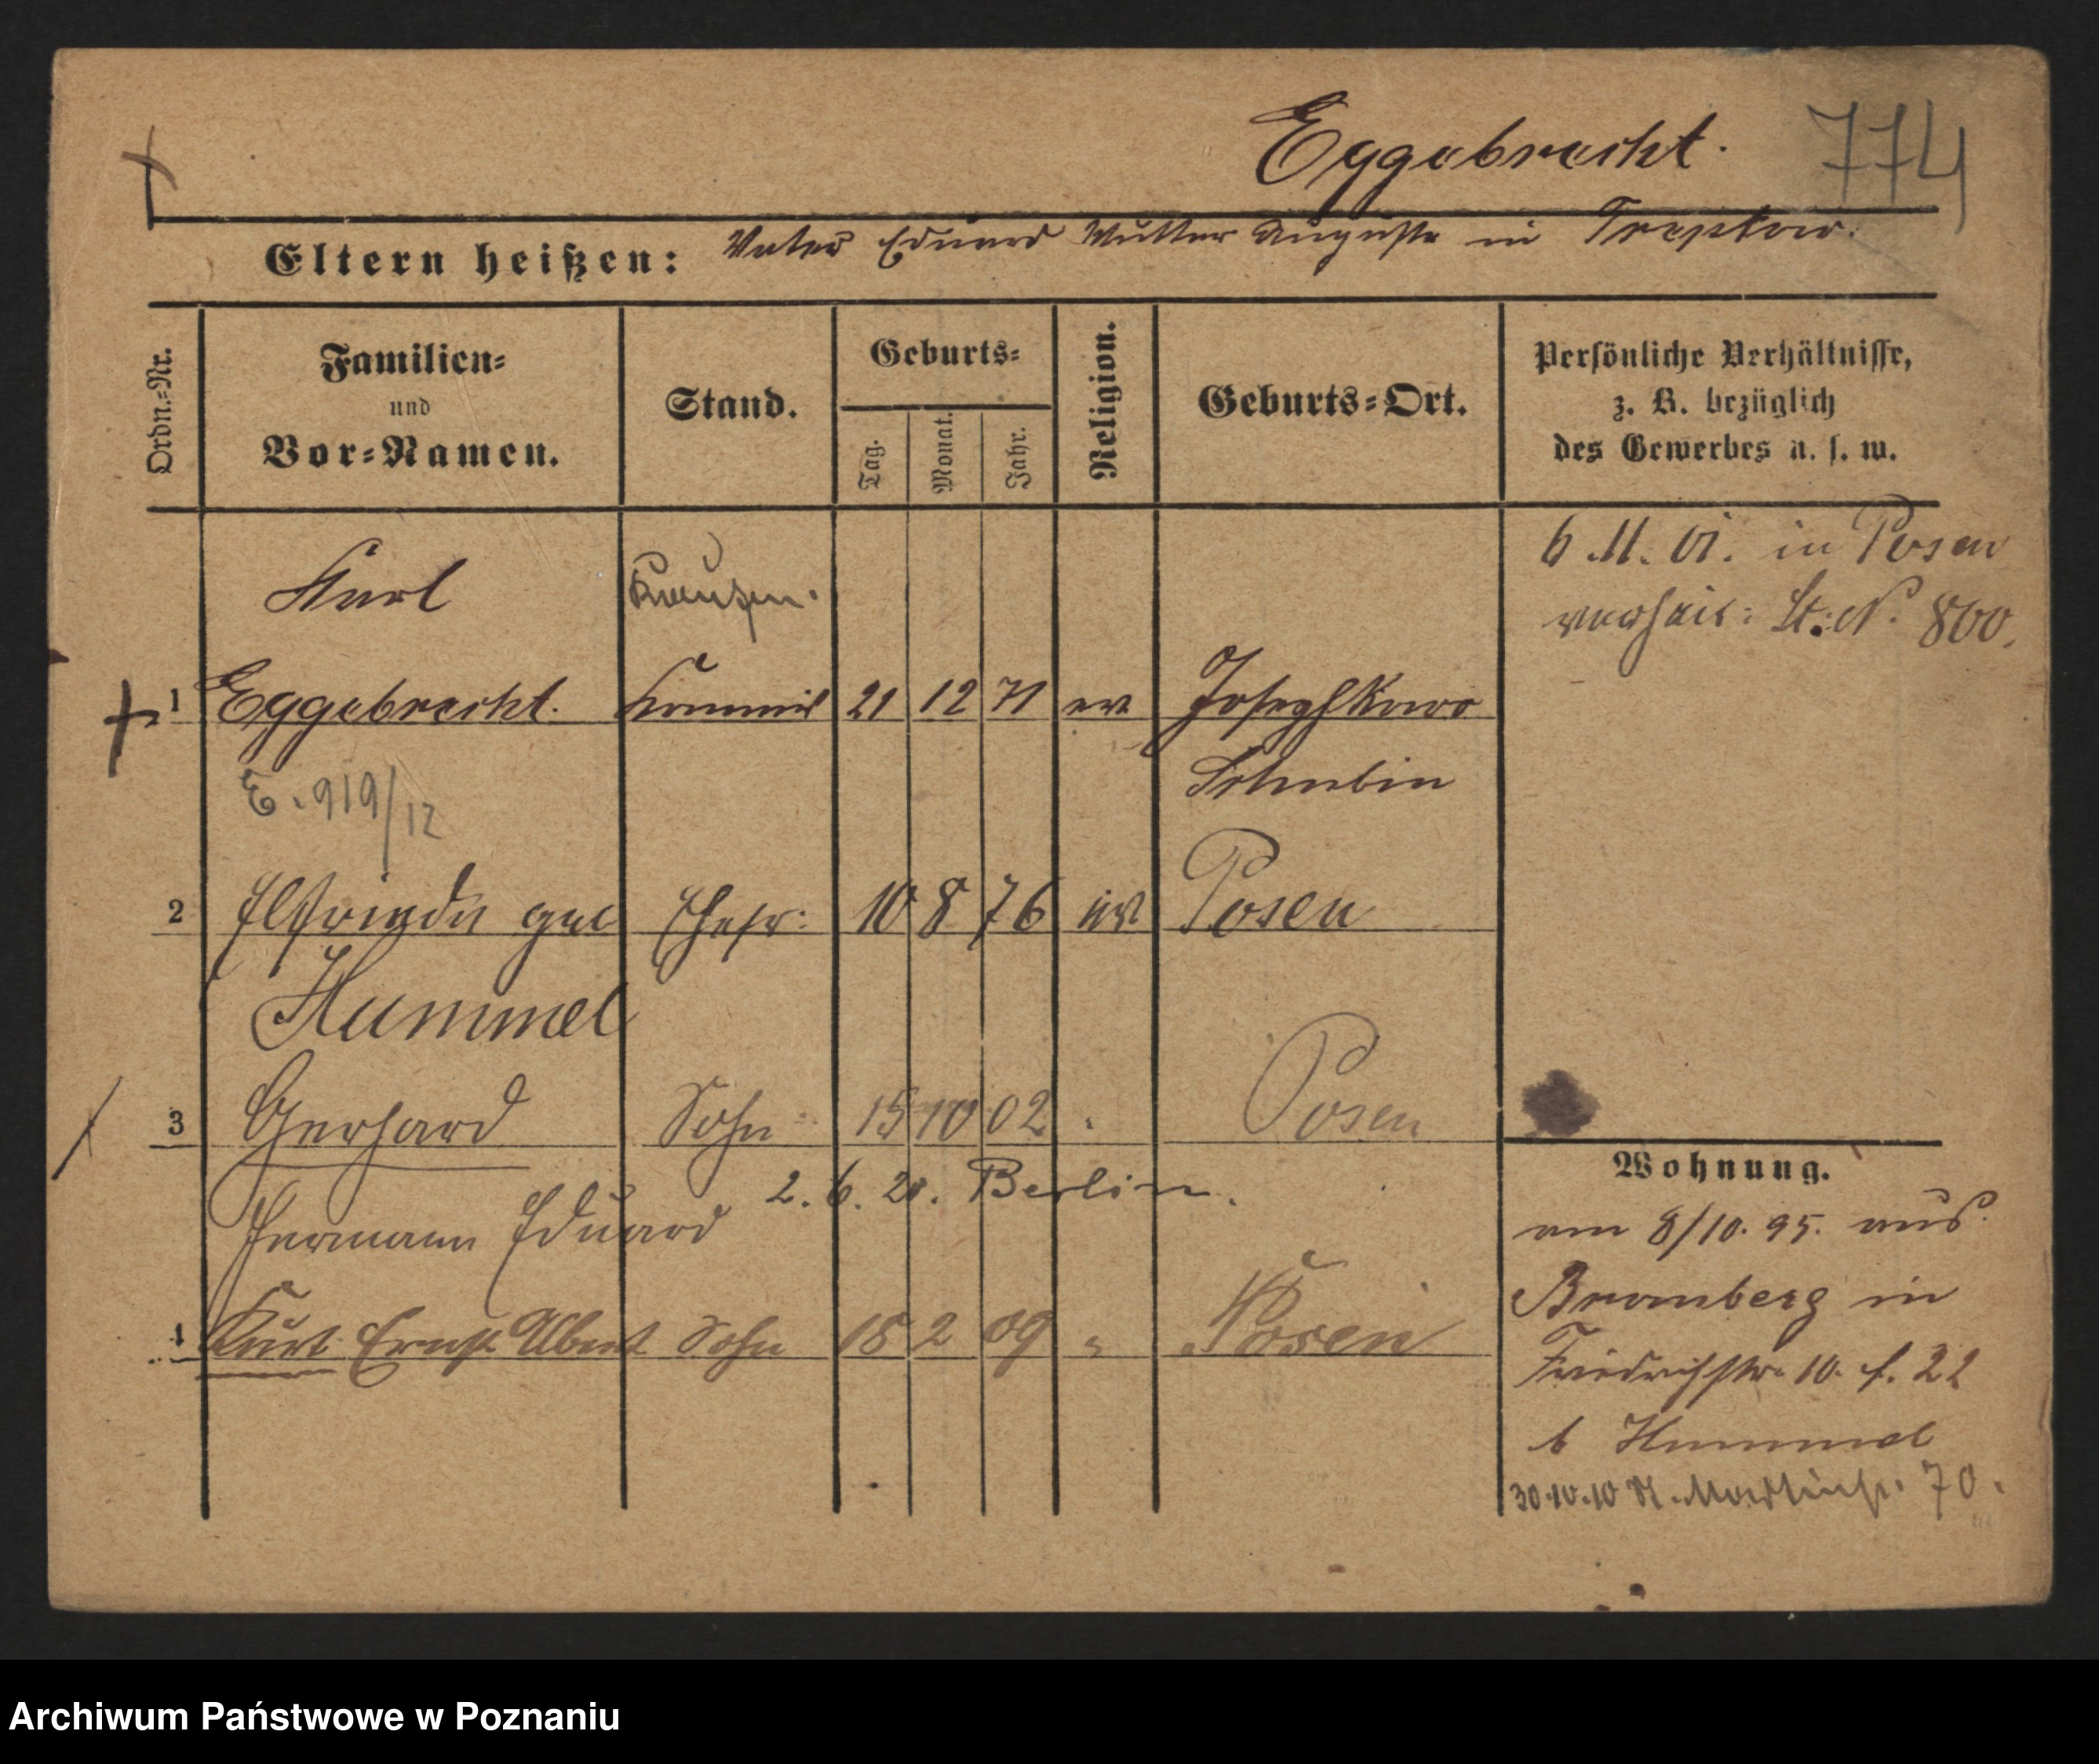 Eggebrecht. 774
Eltern heißen: Vater Eduard Mutter Auguste in Treptow.
Ordn.=Nr.
Familien=
und
Vor=Namen.
Stand.
Geburts=
Tag.
Monat.
Jahr.
Religion.
Geburts=Ort.
Persönliche Verhältnisse,
z. B. bezüglich
des Gewerbes u. s. w.
6.11.01. in Posen
verheir: St. N. 800.
Karl
1 Eggebrecht. Kommis 21 12 71 ev
Schubin
E. 919/12
2 Elfriede geb Ehefr: 10 8 76 ev Posen
Hummel
3 Gerhard Sohn 15 10 02 Posen
2. 6. 21. Berlin.
Hermann Eduard
4 Kurt Ernst Albert Sohn 18 2 09 " Posen
Wohnung.
am 8/10. 95. aus
Bromberg in
Friedrichstr. 10. f. 22
b Hummel
30.10.10 St. Martinstr. 70.
Archiwum Państwowe w Poznaniu